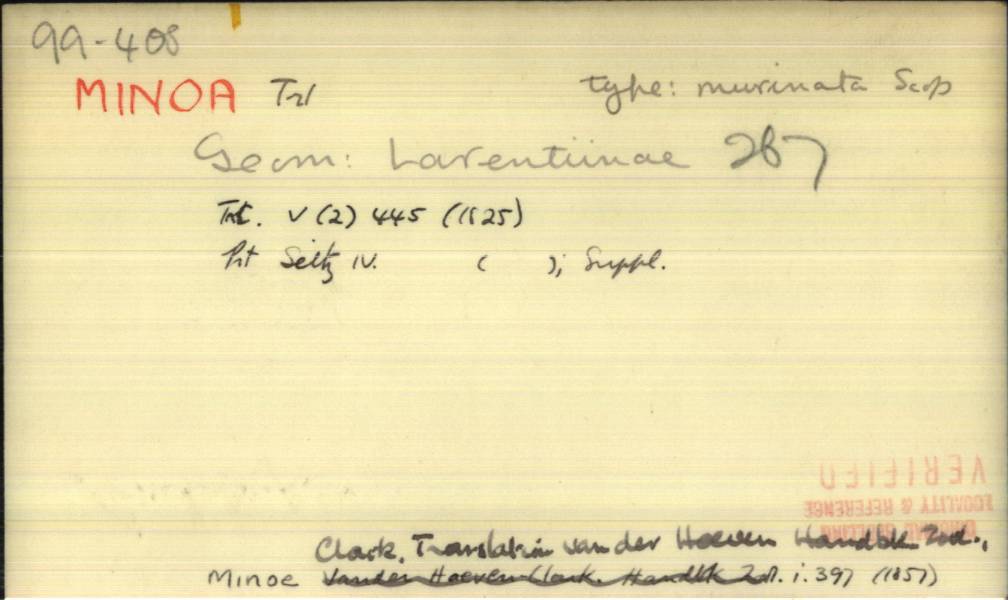 99-408
MINOA Trl type: murinata Scop
Geom: Larentiinae 287
Trt. V (2) 445 (1825)
Prt Seitz IV. ( ); Suppl.
VERIFIED
LOCALITY & REFERENCE
Clark, Translation van der Hoeven Handbk Zool.,
Minoe Vander Hoeven Clark. Handbk Zool. i. 397 (1857)